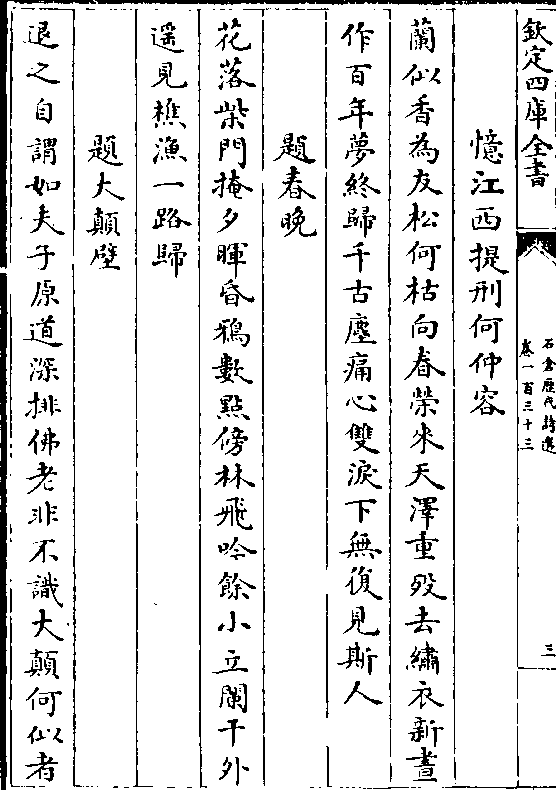 欽定四庫全書
石倉歷代詩選
卷一百三十三
三
憶江西提刑何仲容
蘭似香為友松何枯向春榮來天澤重殁去繡衣新晝
作百年夢終歸千古塵痛心雙淚下無復見斯人
題春晚
花落柴門掩夕暉昏鴉數點傍林飛吟餘小立闌干外
遥見樵漁一路歸
題大顛壁
退之自謂如夫子原道深排佛老非不識大顛何似者